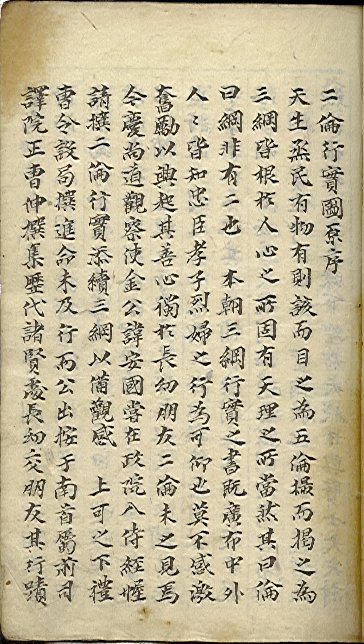 二倫行實圖原序
天生烝民有物有則該而目之為五倫撮而揭之為
三綱皆根於人心之所固有天理之所當然其曰倫
曰綱非有二也 本朝三綱行實之書旣廣布中外
人〻皆知忠臣孝子烈婦之行為可仰也莫不感激
奮勵以興起其善心獨於長幼朋友二倫未之見焉
今慶尚道觀察使金公諱安國嘗在政院入侍經幄
請撰二倫行實添續三綱以備觀感 上可之下禮
曹令設局撰進命未及行而公出按于南首屬前司
譯院正曹伸撰集歷代諸賢處長幼交朋友其行蹟